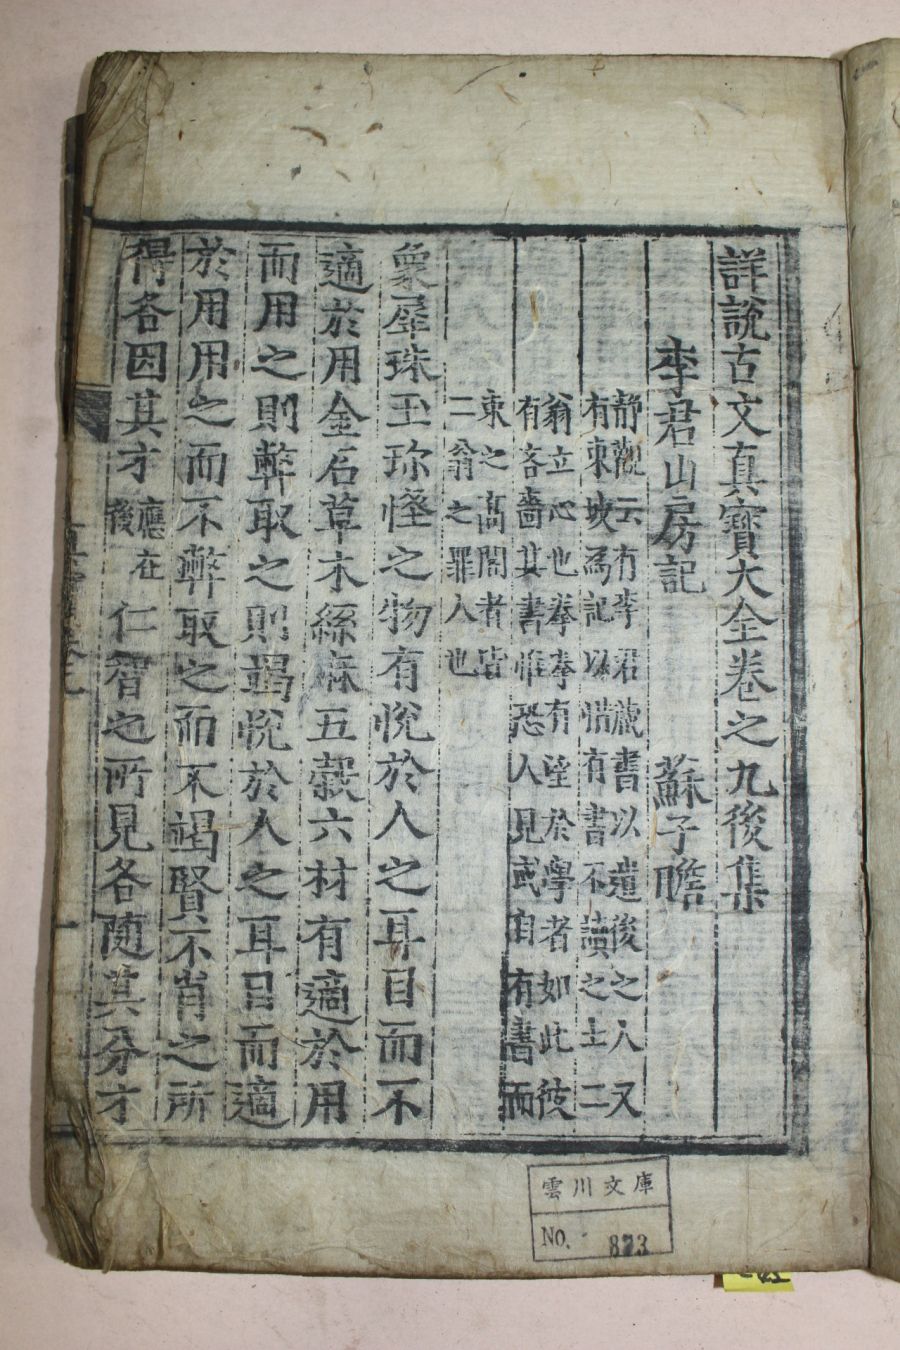 詳說古文真寶大全卷之九後集
李君山房記 蘇子瞻
靜觀云有李君藏書以遺後之人又
有東坡爲記以惜有書不讀之士二
翁立心也拳拳有望於學者如此彼
有吝嗇其書惟恐人見或自有書而
束之高閣者皆
二翁之罪人也
象犀珠玉珍怪之物有悅於人之耳目而不
適於用金石草木絲麻五穀六材有適於用
而用之則弊取之則竭悅於人之耳目而適
於用用之而不弊取之而不竭賢不肖之所
得各因其才應在後仁智之所見各隨其分才
雲川文庫
NO. 873